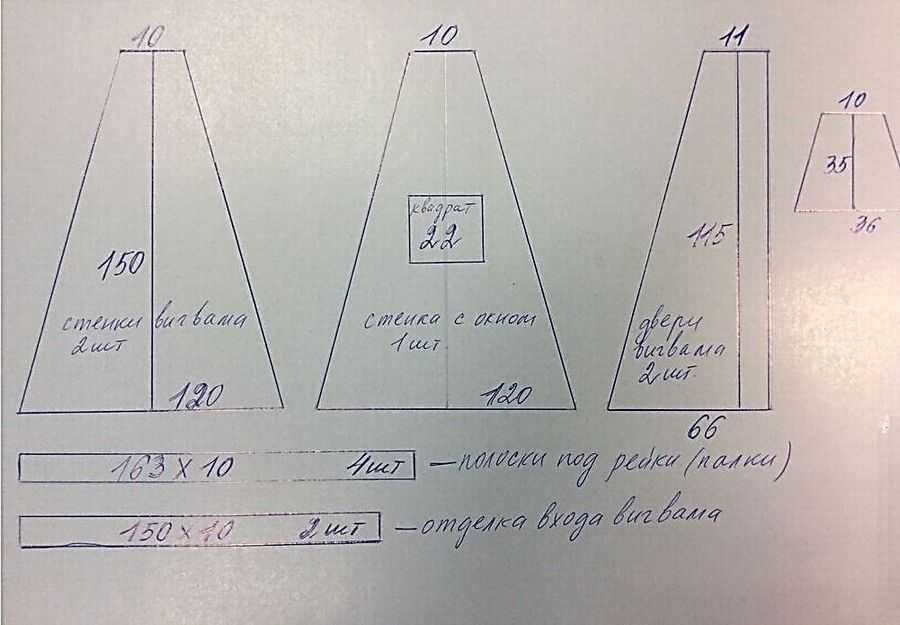 10
150
стенки вигвама
2шт
120
10
квадрат
22
стенка с окном
1шт.
120
11
115
двери
вигвама
2шт.
66
10
35
36
163 х 10 4шт — полоски под рейки (палки)
150 х 10 2шт — отделка входа вигвама